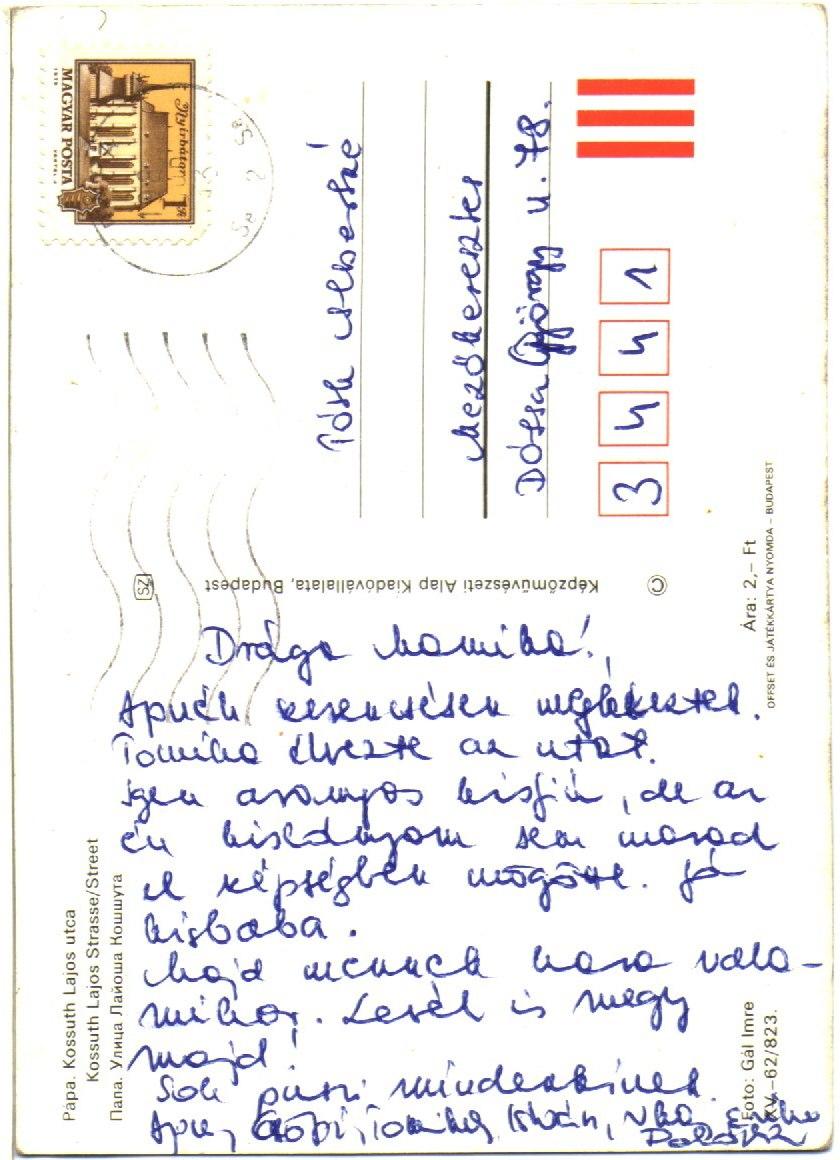 Nyírbátor
1 Ft
MAGYAR POSTA
Tóth Albertné
Mezőkeresztes
Dózsa György u. 78.
3 4 4 1
Képzőművészeti Alap Kiadóvállalata, Budapest
SZ
©
Ára: 2,– Ft
OFFSET ÉS JÁTÉKKÁRTYA NYOMDA – BUDAPEST
Drága Mamika!
Apuék szerencsésen megérkeztek.
Tomika élvezte az utat.
Igen aranyos kisfiú, de az
én kislányom sem marad
el képségben mögötte. Jó
kisbaba.
Majd mennek haza vala-
mikor. Levél is megy
majd!
Sok puszi mindenkinek.
Apu, Tomika, István,
Pápa. Kossuth Lajos utca
Kossuth Lajos Strasse/Street
Папа. Улица Лайоша Кошшута
Foto: Gál Imre
XV.–62/823.